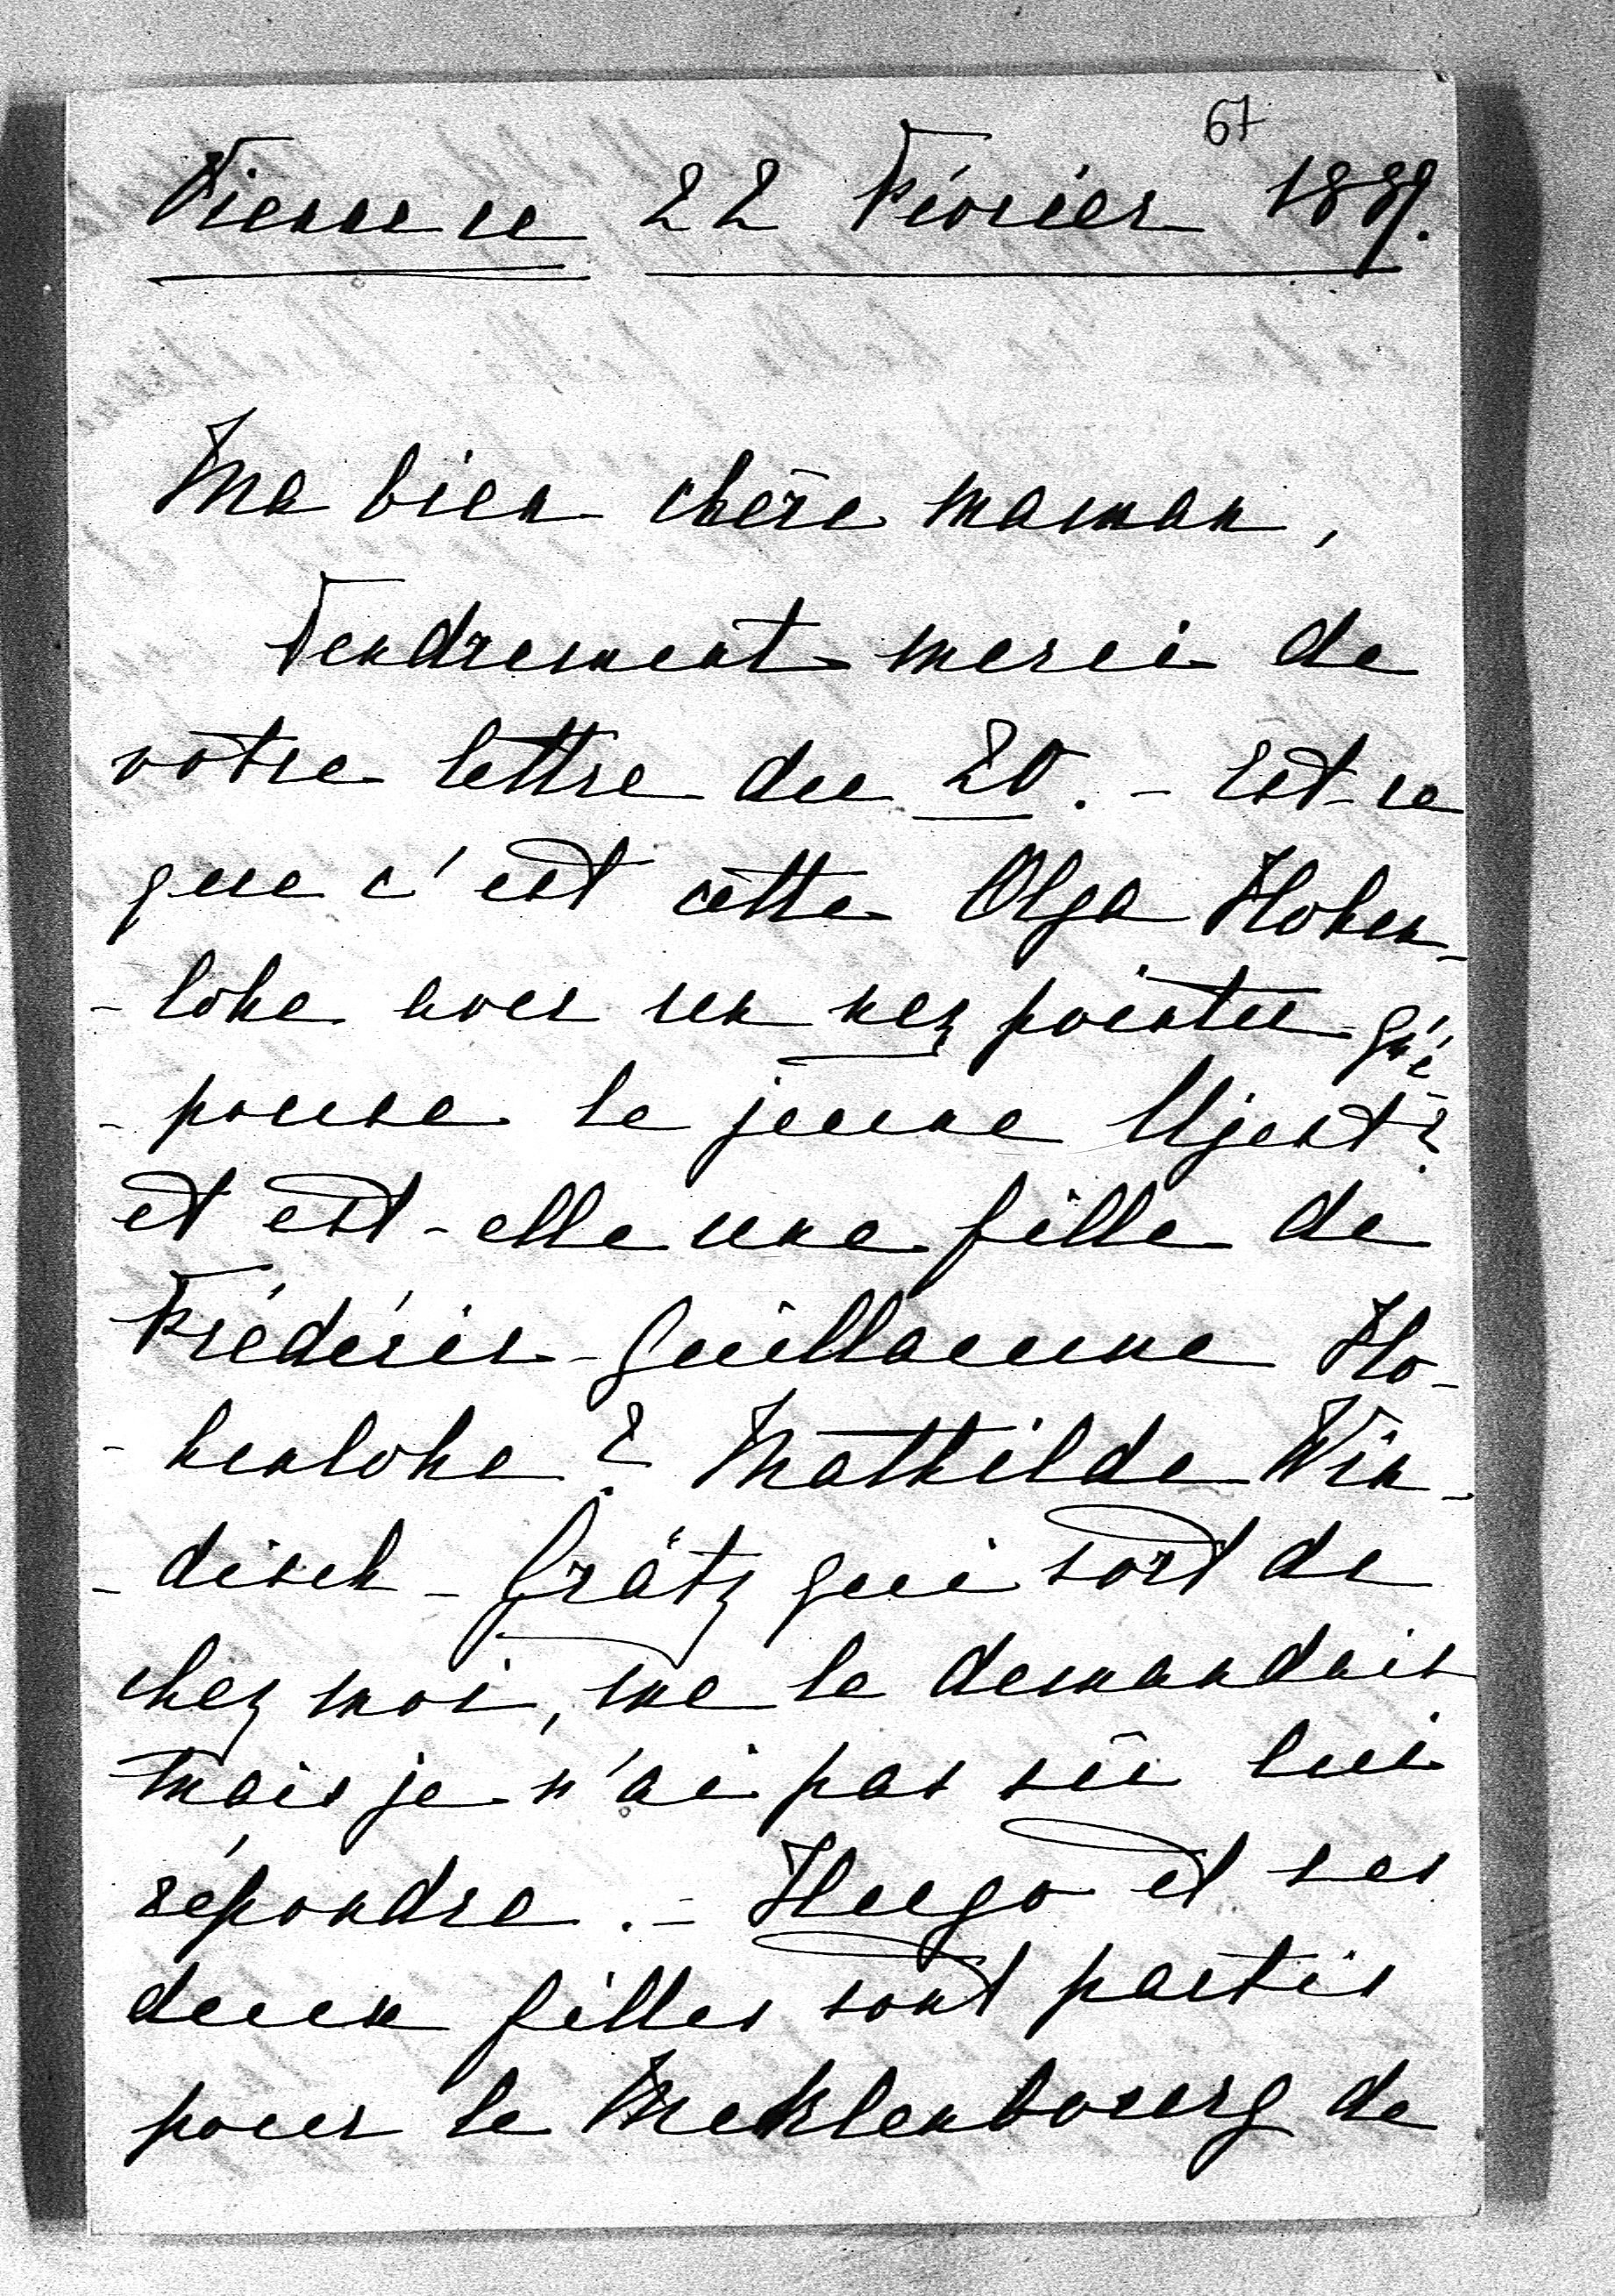 67
Vienne ce 22 Février 1889.
Ma bien chère maman,
Tendrement merci de
votre lettre du 20. - Est-ce
que c'est cette Olga Hohen-
-lohe avec un nez pointu qu'é-
-pouse le jeune Ujest?
et est-elle une fille de
Frédéric-Guillaume Ho-
-henlohe? Mathilde Win-
-disch-Grätz qui sort de
chez moi, me le demandais
mais je n'ai pas sû lui
répondre. - Hugo et ses
deux filles sont partis
pour le Meklenbourg de